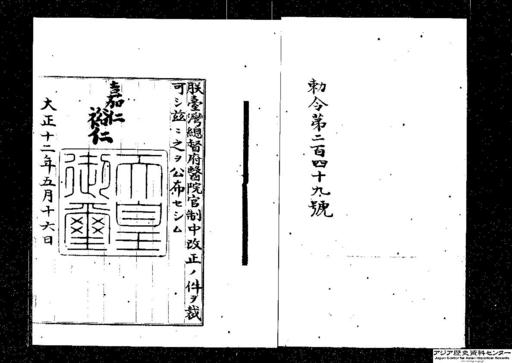 勅令第二百四十九號
朕臺灣總督府醫院官制中改正ノ件ヲ裁
可シ茲ニ之ヲ公布セシム
嘉仁
裕仁
天皇
御璽
大正十二年五月十六日
アジア歴史資料センター
Japan Center for Asian Historical Records